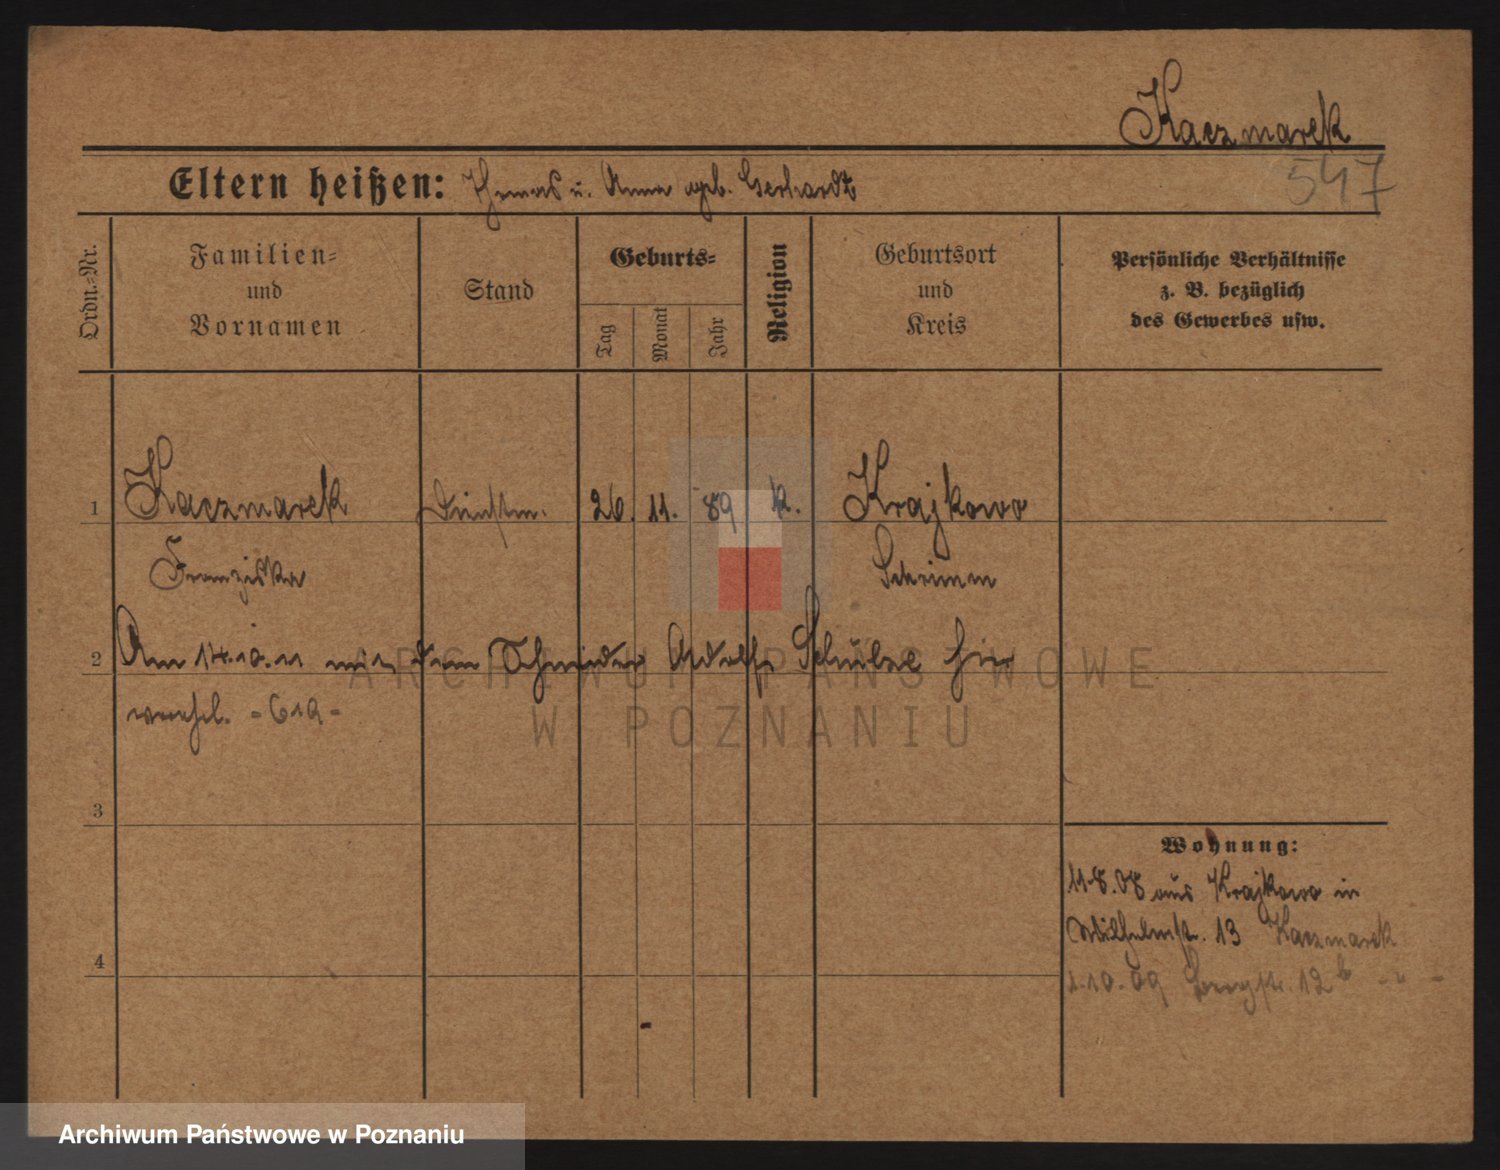 Kaczmarek
547
Eltern heißen: Thomas u. Anna geb. Gerhardt
Ordn.-Nr.
Familien-
und
Vornamen
Stand
Geburts-
Tag
Monat
Jahr
Religion
Geburtsort
und
Kreis
Persönliche Verhältnisse
z. B. bezüglich
des Gewerbes usw.
1 Kaczmarek 26. 11. 89 k. Krajkowo
Franziska Schrimm
2 Am 14.10.11 mit dem Schneider Adolf Schulze hier
verehel. - 619 -
3
4
Wohnung:
11.8.08 aus Krajkowo in
Wilhelmstr. 13 Kaczmarek
1.10.09 Bergstr. 12b - " -
ARCHIWUM PAŃSTWOWE
W POZNANIU
Archiwum Państwowe w Poznaniu